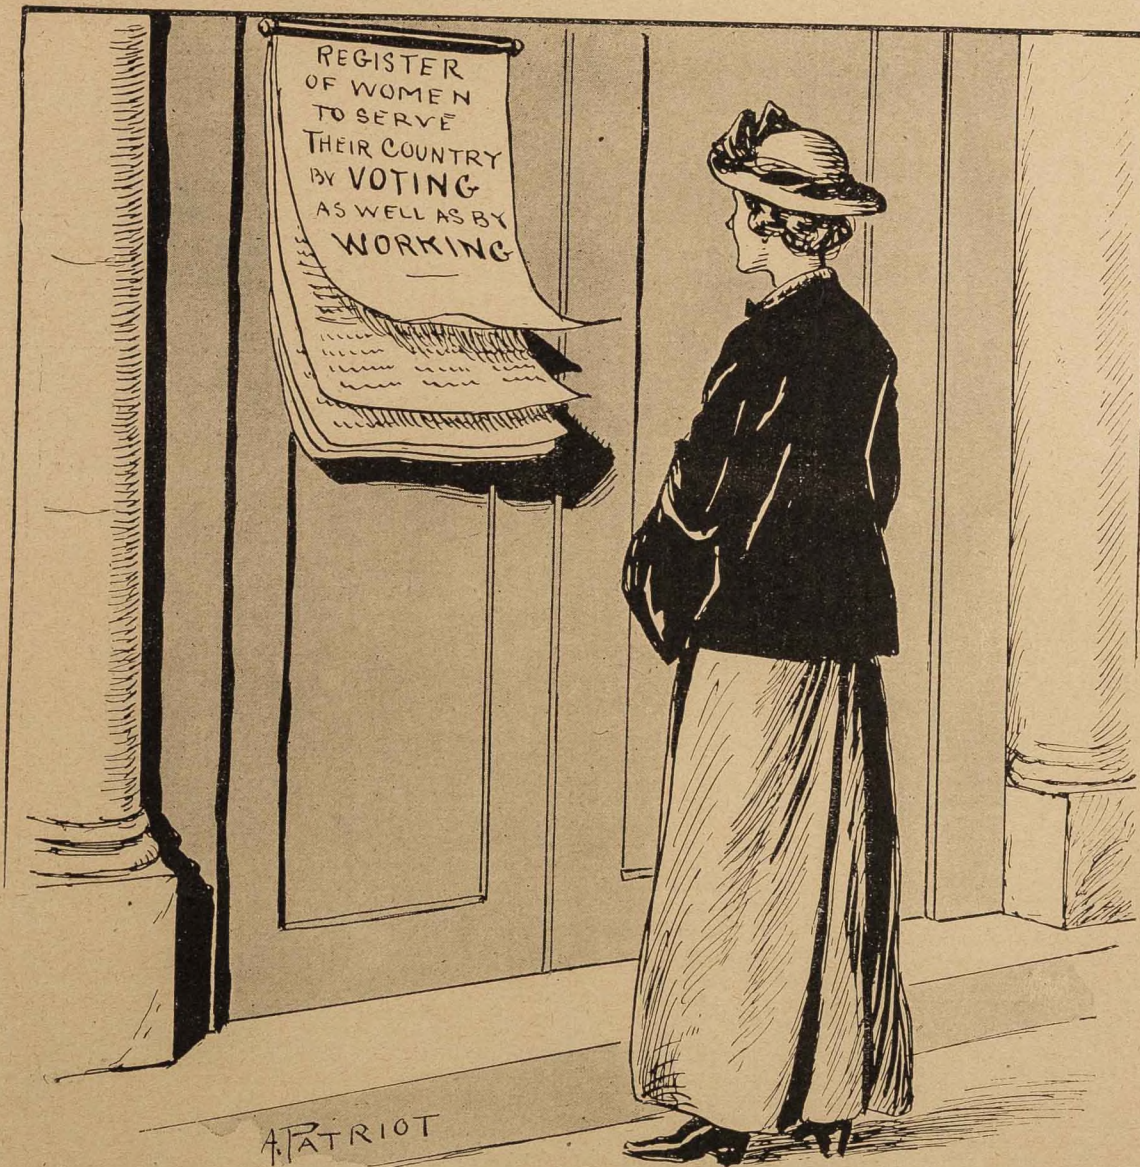 REGISTER
OF WOMEN
TO SERVE
THEIR COUNTRY
BY VOTING
AS WELL AS BY
WORKING
A. PATRIOT